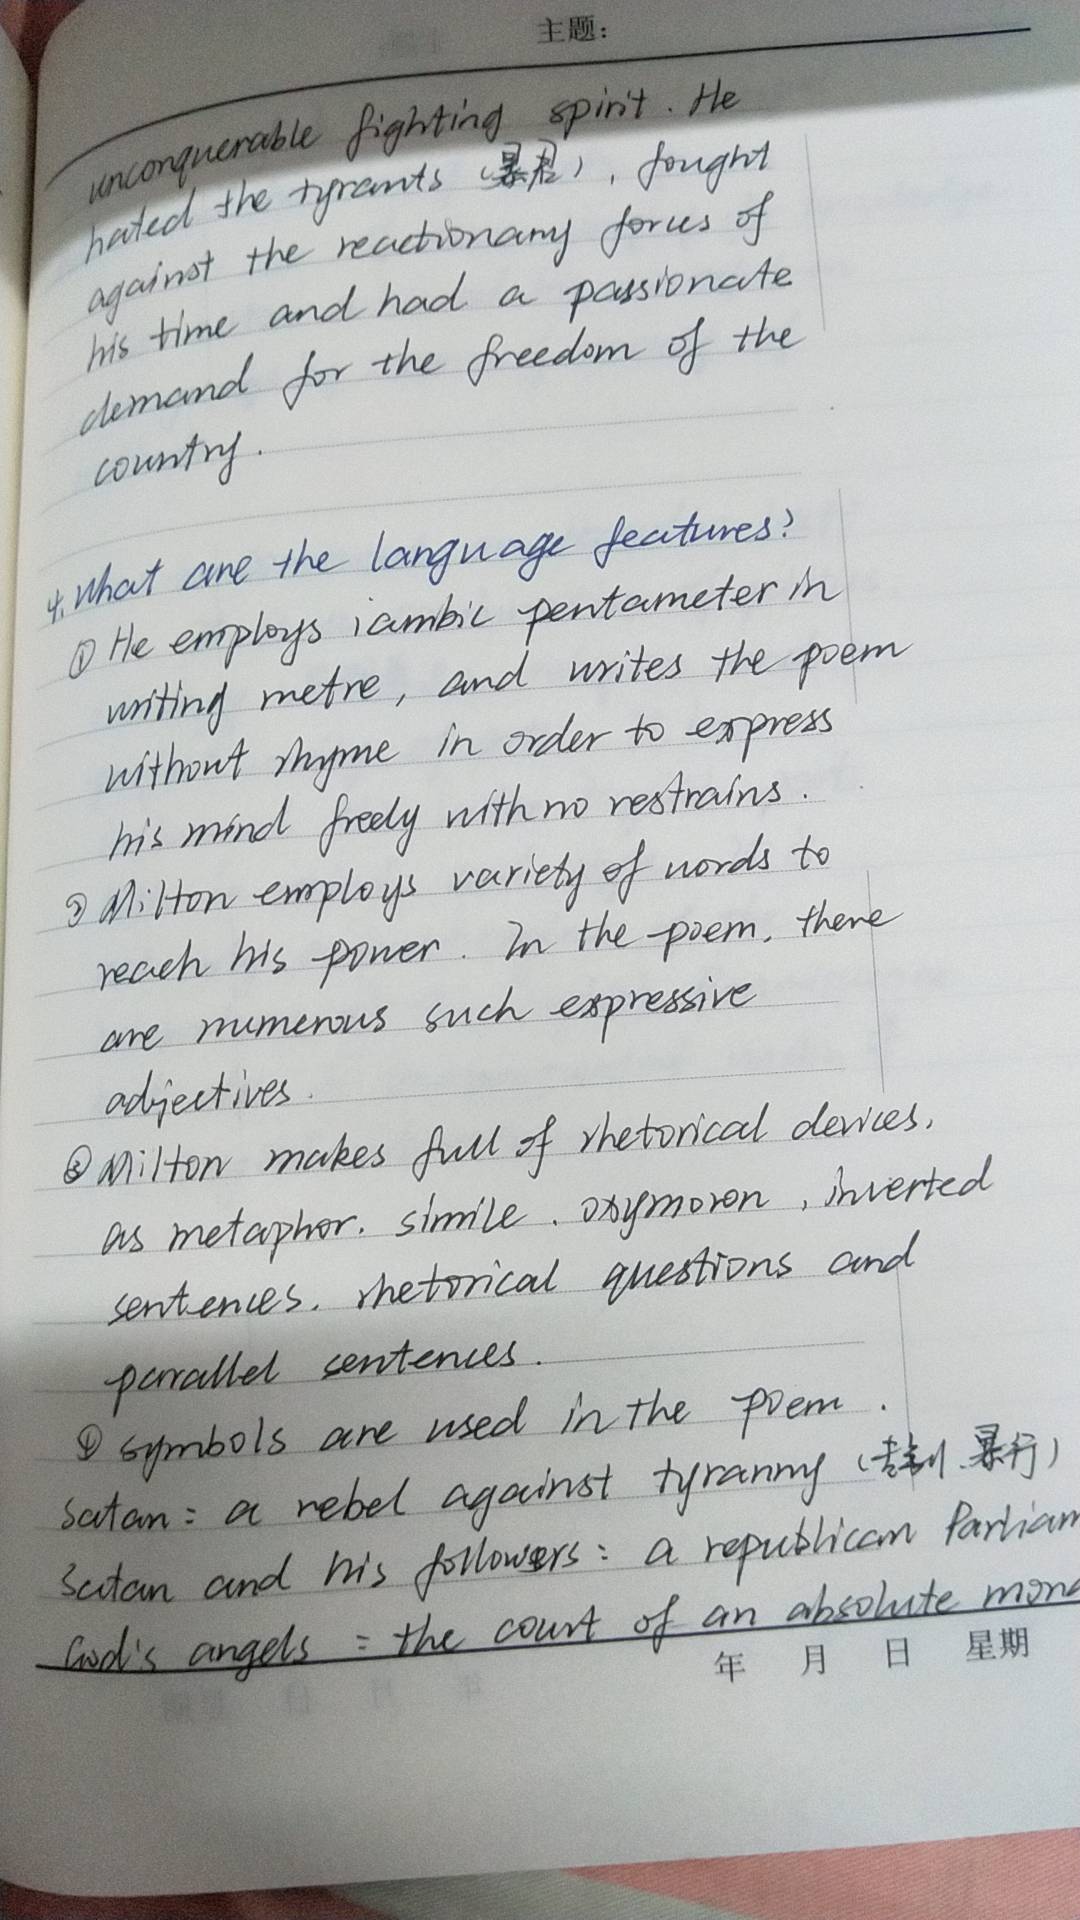 主题:
unconquerable fighting spirit. He
hated the tyrants (暴君), fought
against the reactionary forces of
his time and had a passionate
demand for the freedom of the
country.
4. What are the language features?
① He employs iambic pentameter in
writing metre, and writes the poem
without rhyme in order to express
his mind freely with no restrains.
② Milton employs variety of words to
reach his power. In the poem, there
are numerous such expressive
adjectives.
③ Milton makes full of rhetorical devices,
as metaphor. simile. oxymoron, inverted
sentences. rhetorical questions and
parallel sentences.
④ symbols are used in the poem.
Satan: a rebel against tyranny (专制、暴行)
Satan and his followers: a republican Parliam
God's angels: the court of an absolute mona
年 月 日 星期